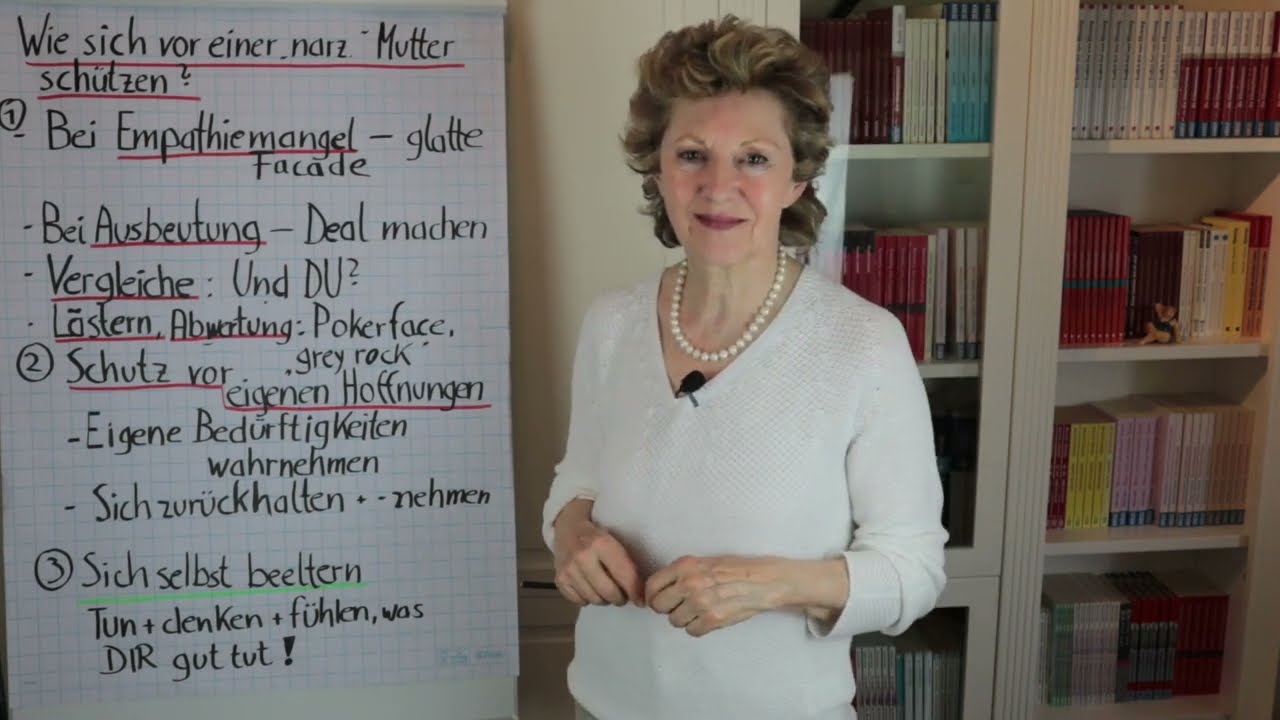 Wie sich vor einer „narz." Mutter
schützen?
① - Bei Empathiemangel – glatte
Facade
- Bei Ausbeutung – Deal machen
- Vergleiche: Und DU?
- Lästern, Abwertung: Pokerface,
„grey rock"
② Schutz vor
eigenen Hoffnungen
- Eigene Bedürftigkeiten
wahrnehmen
- Sich zurückhalten + -nehmen
③ Sich selbst beeltern
Tun + denken + fühlen, was
DIR gut tut!